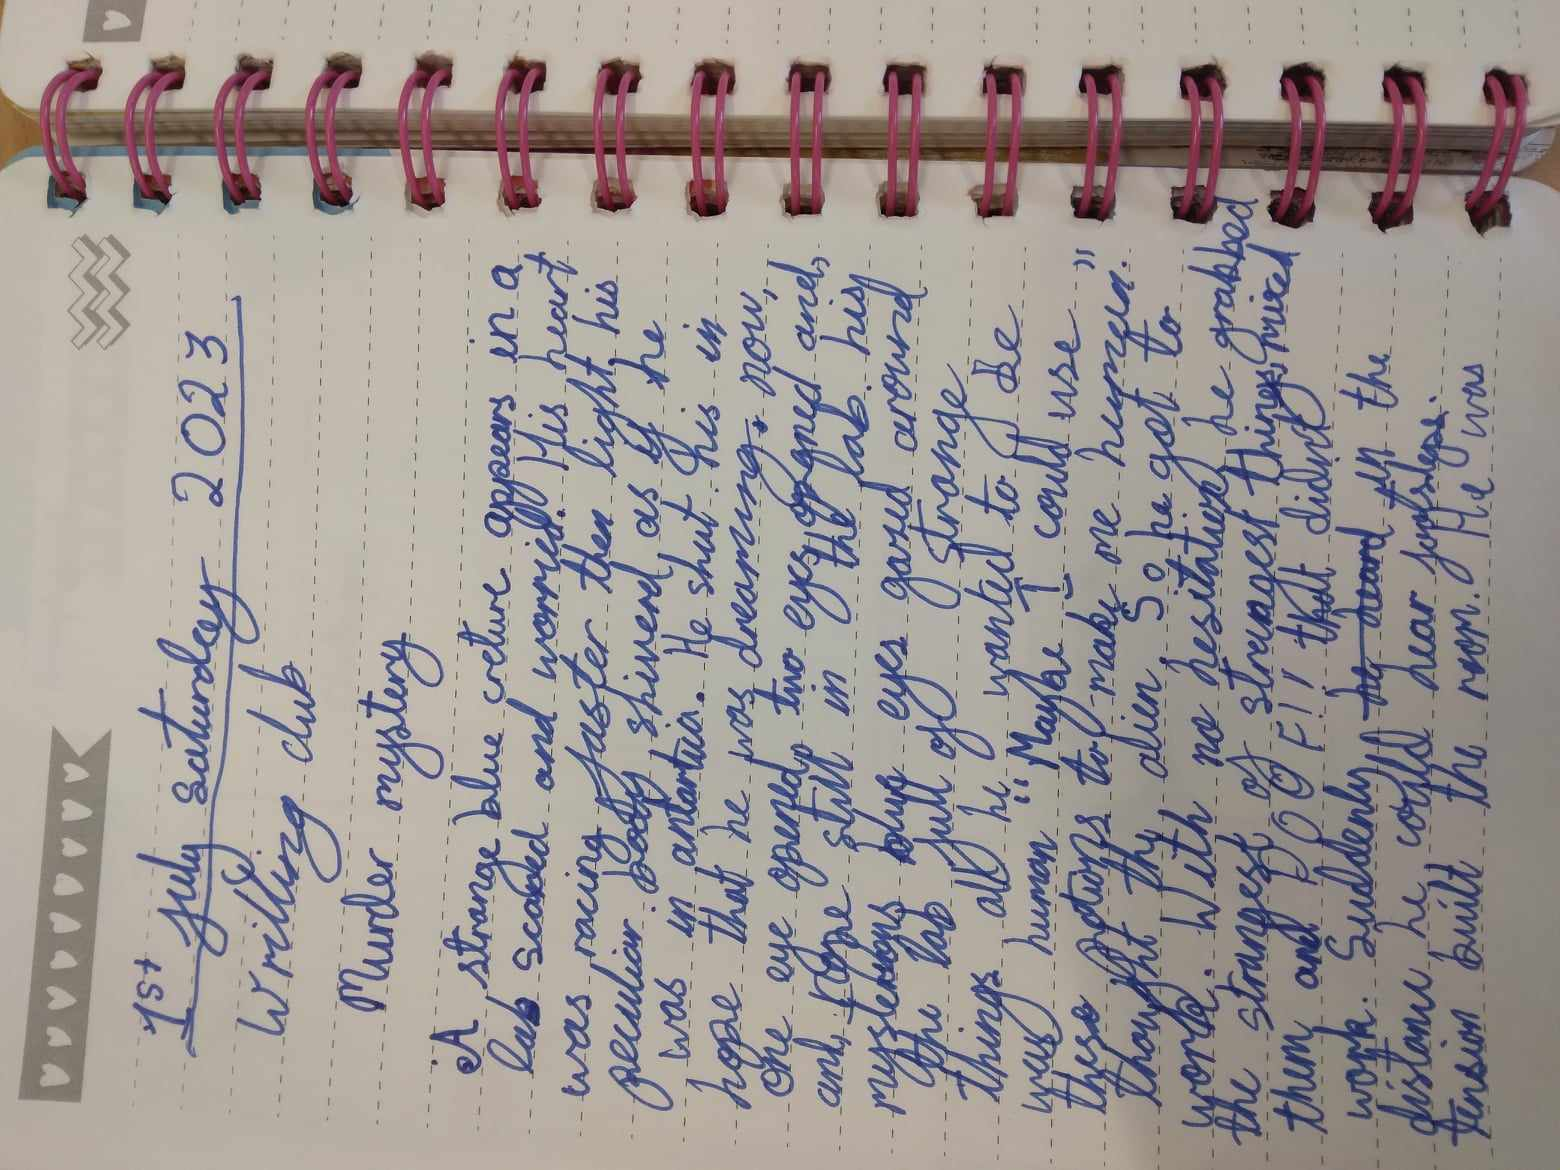 1st July saturday 2023
Writing club
Murder mystery
A strange blue creture appears in a
lab scared and worried. His heart
was racing faster then light, his
peculiar body shivered as if he
was in antartica. He shut his in
hope that he was dreaming. now,
One eye opened, two eyes opened and,
and, nope still in the lab. his
mysterious blue eyes gazed around
the lab full of strange
things all he wanted to be
was human " Maybe I could use "
these potions to make me human.
thought thy alien. So he got to
work. With no hesitation, he grabbed
the strangest of strangest things, mixed
them and POOF!! that didn't
work. Suddenly hy heard in the
distance he could hear footsteps.
Tension built the room. He was